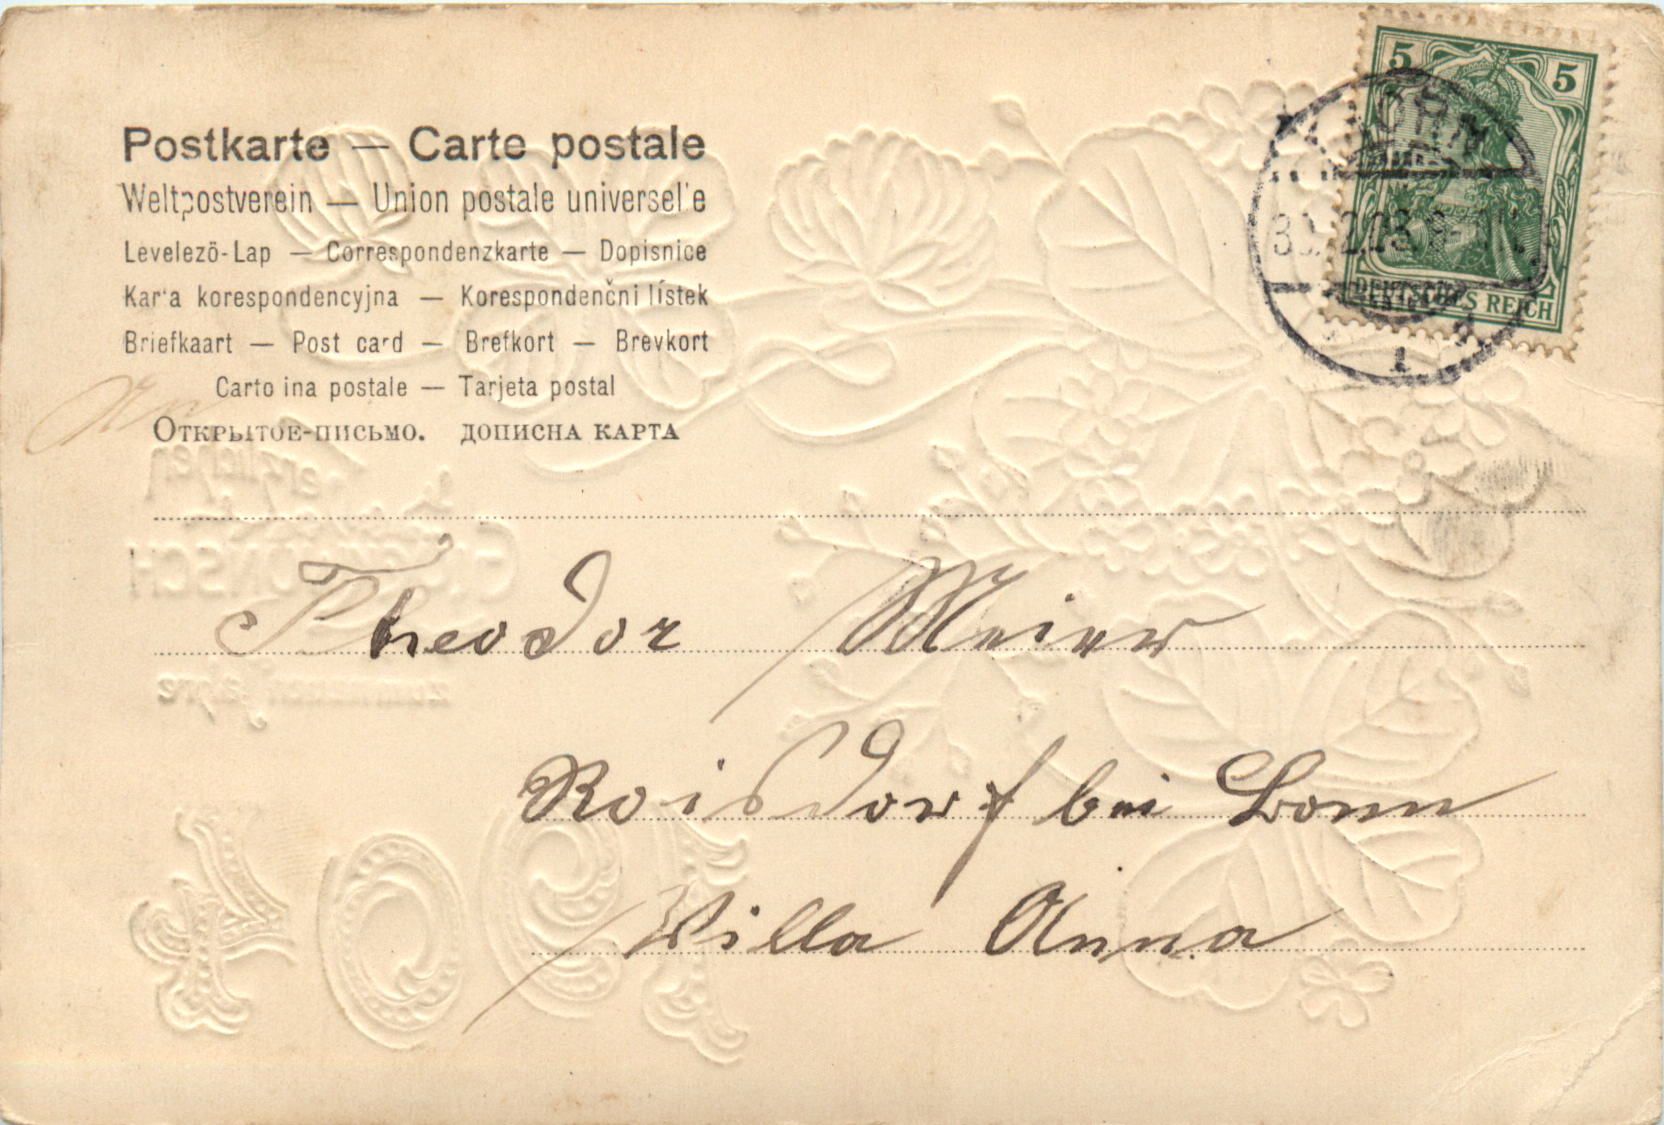 Postkarte — Carte postale
Weltpostverein — Union postale universelle
Levelezö-Lap — Correspondenzkarte — Dopisnice
Karta korespondencyjna — Korespondenčni lístek
Briefkaart — Post card — Brefkort — Brevkort
Cartolina postale — Tarjeta postal
Открытое-письмо. дописна карта
An
5 5
DEUTSCHES REICH
Herzlichen
GLÜCKWUNSCH
zum neuen Jahre
1904
Theodor Meier
Roisdorf bei Bonn
Villa Anna